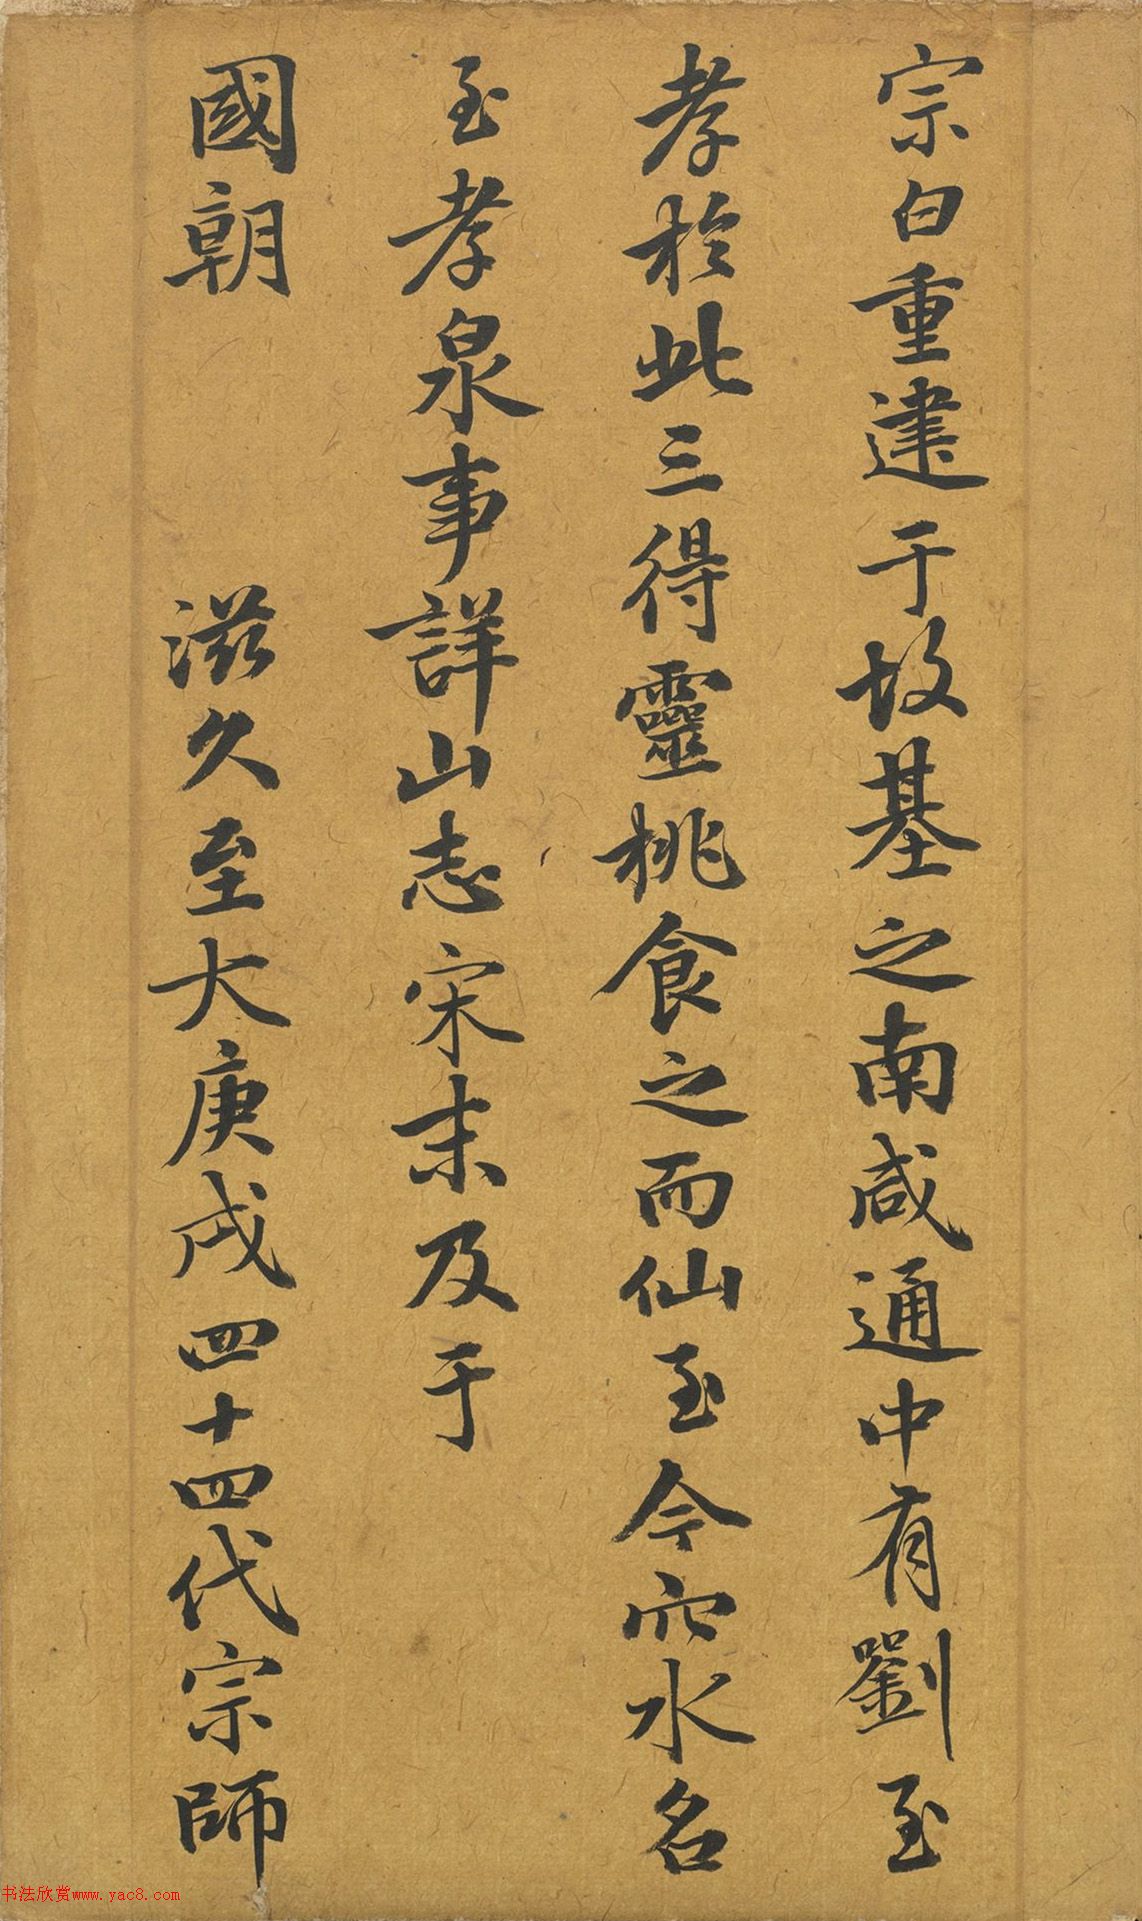 宗白重建于故基之南咸通中有劉至
孝於此三得靈桃食之而仙至今穴水名
至孝泉事詳山志宋末及于
國朝 滋久至大庚戌四十四代宗師
书法欣赏www.yac8.com